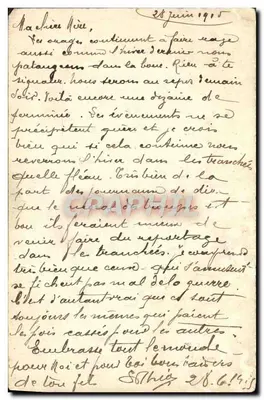 28 juin 1915
Ma chère Mère,
Les orages continuent à faire rage
aussi comme l'hiver dernier nous
pataugeons dans la boue. Rien à te
signaler. Nous serons au repos demain
soir. Voilà encore une dizaine de
terminée. Les événements ne se
précipitent guère et je crois
bien que si cela continue nous
reverrons l'hiver dans les tranchées
quelle fléau. Et bien de la
part des journaux de dire
que le moral des troupes est
bon ils feraient mieux de
venir faire du reportage
dans les tranchées. Je comprend
très bien que ceux qui s'amusent
se fichent pas mal de la guerre
C'est d'autant vrai que ce sont
toujours les mêmes qui paient
les pots cassés pour les autres.
Embrasse tout le monde
pour moi et pour toi bons baisers
de ton fils 28.6.15